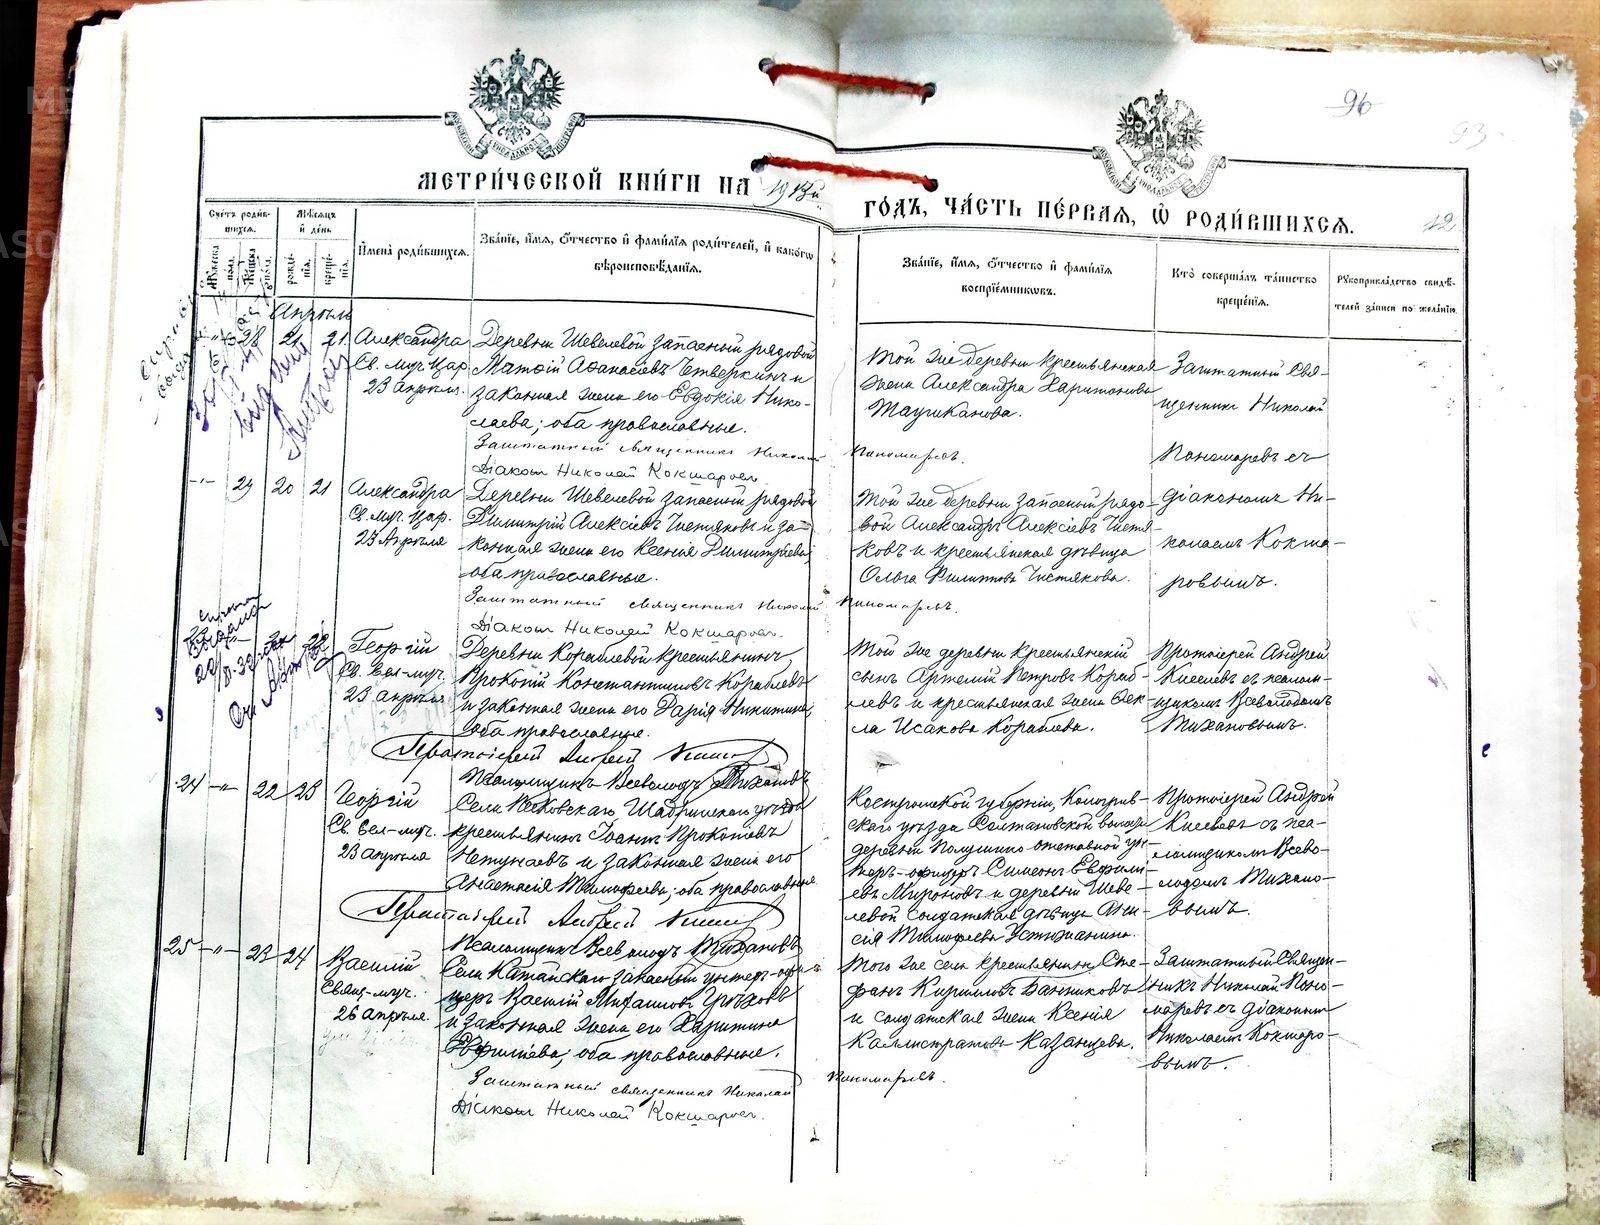 96
93
МЕТРИЧЕСКОЙ КНИГИ НА
ГОДЪ, ЧАСТЬ ПЕРВАЯ, Ѡ РОДИВШИХСЯ.
42
Счетъ родив-
шихся.
Мѣсяцъ
и день
Мужеска
пола.
Женска
пола.
рожде-
нія.
креще-
нія.
Имена родившихся.
Званіе, имя, ѻтчество и фамилія родителей, и какогѡ
вѣроисповѣданія.
Званіе, имя, ѻтчество и фамилія
воспріемниковъ.
Кто совершалъ таинство
крещенія.
Рукоприкладство свидѣ-
телей записи по желанію.
Апрѣль
28 21 21 Александра
Св. муч. цар.
23 Апрѣля.
Деревни Шевелевой запасный рядовой
Матѳій Аѳанасіевъ Четверкинъ и
законная жена его Евдокія Нико-
лаева; оба православные.
Заштатный священникъ Николай Пономаревъ.
Діаконъ Николай Кокшаровъ.
Той же деревни крестьянская
жена Александра Харитонова
Таушканова.
Заштатный Свя-
щенникъ Николай
Пономаревъ съ
діакономъ Ни-
колаемъ Кокша-
ровымъ.
29 20 21 Александра
Св. муч. цар.
23 Апрѣля
Деревни Шевелевой запасный рядовой
Димитрій Алексіевъ Чистяковъ и за-
конная жена его Ксенія Димитріева;
оба православные.
Заштатный священникъ Николай Пономаревъ.
Діаконъ Николай Кокшаровъ.
Той же деревни запасный рядо-
вой Александръ Алексіевъ Чистя-
ковъ и крестьянская дѣвица
Ольга Филиппова Чистякова.
Георгій
Св. вел-муч.
23 апрѣля
Деревни Кораблевой крестьянинъ
Прокопій Константиновъ Кораблевъ
и законная жена его Дарія Никитина,
оба православные.
Протоіерей Андрей Киселевъ
Псаломщикъ Всеволодъ Тихановъ
Той же деревни крестьянскій
сынъ Артемій Петровъ Кораб-
левъ и крестьянская жена Ѳек-
ла Исакова Кораблева.
Протоіерей Андрей
Киселевъ съ псалом-
щикомъ Всеволодомъ
Тихановымъ.
24 22 23 Георгій
Св. вел-муч.
23 апрѣля
крестьянинъ Іоаннъ Прокопіевъ
и законная жена его
Анастасія Тимофеева; оба православные
Протоіерей Андрей Киселевъ
Псаломщикъ Всеволодъ Тихановъ
Костромской губерніи, Кологрив-
скаго уѣзда Солтановской волости
деревни Полушино отставной ун-
теръ-офицеръ Симеонъ Евфимі-
евъ Мироновъ и деревни Шеве-
левой солдатская дѣвица
Тимофеева Устюжанина.
Протоіерей Андрей
Киселевъ съ пса-
ломщикомъ Всево-
лодомъ Тихано-
вымъ.
25 23 24 Василій
Свящ-муч.
26 апрѣля.
Села Катайскаго запасный унтеръ-офи-
церъ Василій Михаиловъ
и законная жена его Харитина
Евфиміева; оба православные.
Заштатный священникъ Николай Пономаревъ.
Діаконъ Николай Кокшаровъ.
Того же села крестьянинъ Сте-
фанъ Кирилловъ Банниковъ
и солдатская жена Ксенія
Каллистратова Казанцева.
Заштатный Священ-
никъ Николай Поно-
маревъ съ діакономъ
Николаемъ Кокшаро-
вымъ.